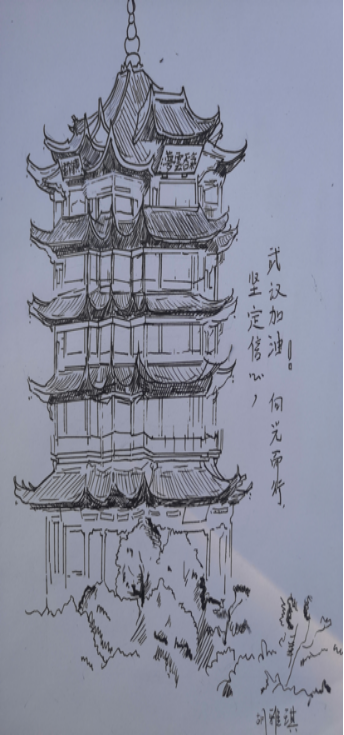 武汉加油！向光而行.
坚定信心，
雅琪